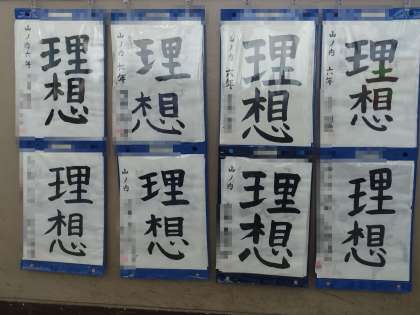 理想
山ノ内六年
理想
山ノ内 六年
理想
山ノ内 六年
理想
山ノ内 六年
理想
理想
山ノ内
理想
山ノ内
理想